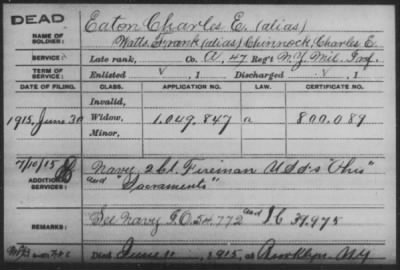 DEAD
NAME OF SOLDIER:
Eaton Charles E. (alias)
Watts, Frank (alias) Chinnock, Charles E.
SERVICE:
Late rank, Co. A, 47 Reg't N.Y. Mil. Inf.
TERM OF SERVICE:
Enlisted V, 1 Discharged V, 1
DATE OF FILING. CLASS. APPLICATION NO. LAW. CERTIFICATE NO.
Invalid,
1915, June 30 Widow, 1,049,847 a 800,089
Minor,
7/10/15
ADDITIONAL SERVICES:
Navy, 2 Cl. Fireman U.S.S. "Ohio"
and "Sacramento"
REMARKS:
See Navy I.O. 54,772 and I C 39,975
Died June 11, 1915, at Brooklyn N.Y.